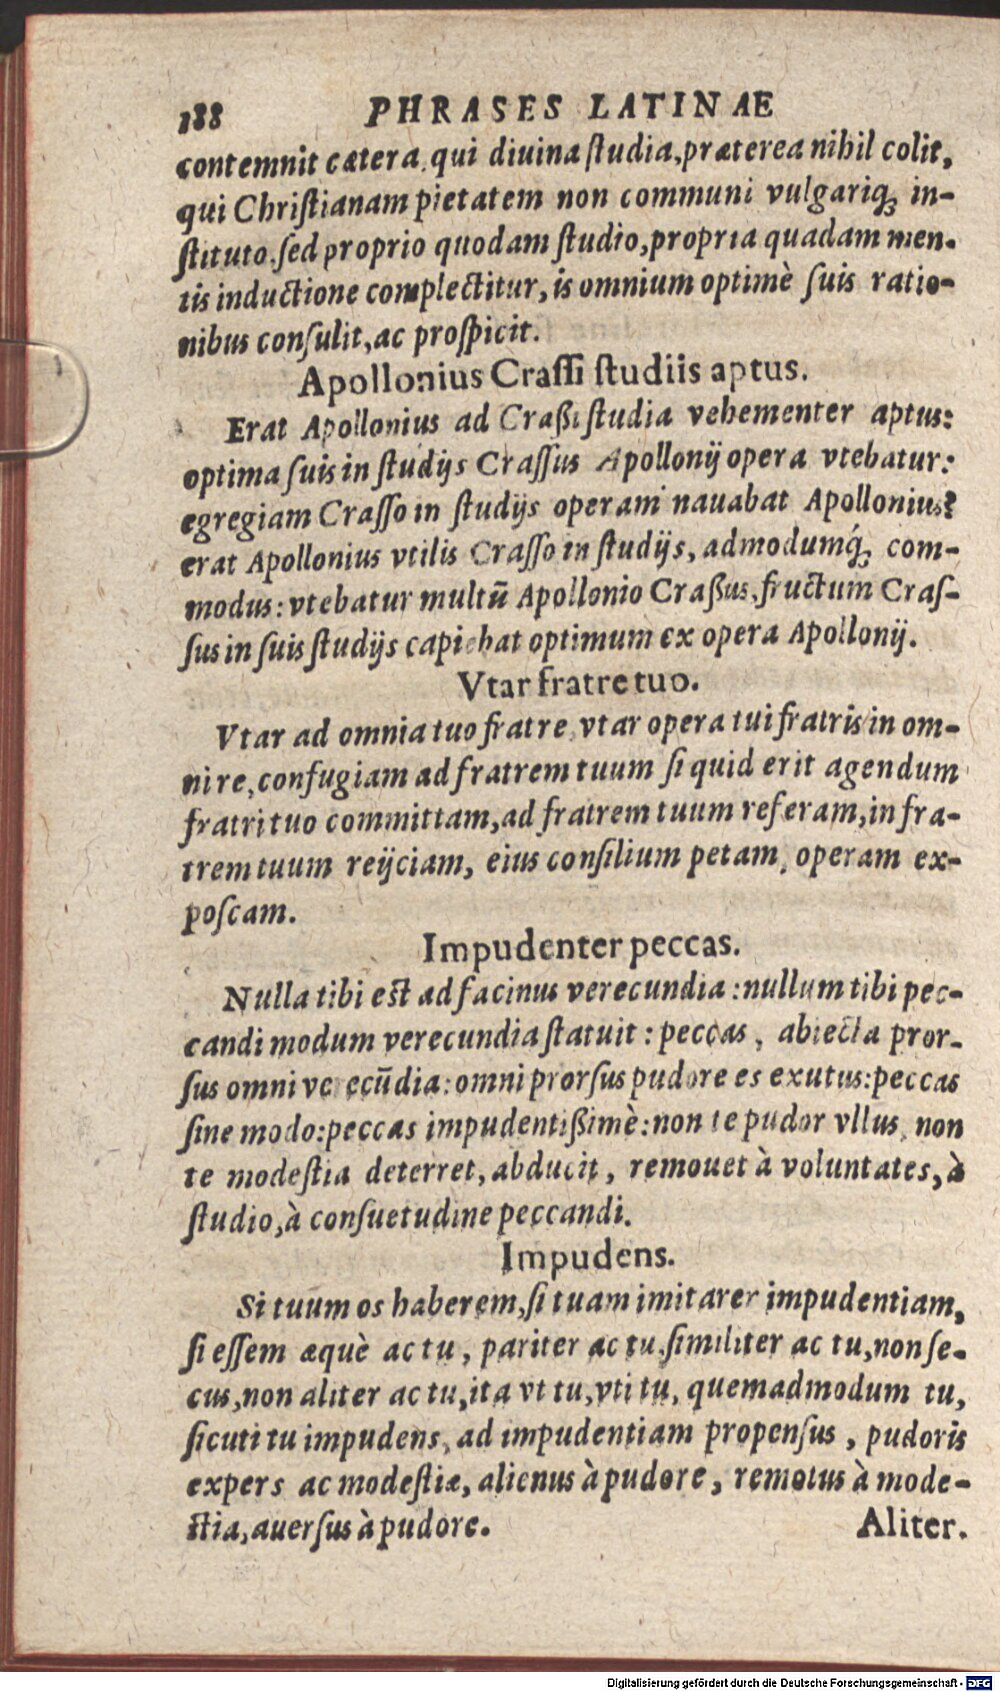 188 PHRASES LATINAE
contemnit cætera, qui diuina ſtudia, præterea nihil colit,
qui Chriſtianam pietatem non communi vulgariq́ꝫ in-
ſtituto. ſed proprio quodam ſtudio, propria quadam men-
tis inductione complectitur, is omnium optimè ſuis ratio-
nibus conſulit, ac proſpicit.
Apollonius Craſſi ſtudiis aptus.
Erat Apollonius ad Craßi ſtudia vehementer aptus:
optima ſuis in ſtudijs Craſſus Apollonij opera vtebatur:
egregiam Craſſo in ſtudijs operam nauabat Apollonius:
erat Apollonius vtilis Craſſo in ſtudijs, admodumq́ꝫ com-
modus: vtebatur multū Apollonio Craßus, fructum Craſ-
ſus in ſuis ſtudijs capiebat optimum ex opera Apollonij.
Vtar fratre tuo.
Vtar ad omnia tuo fratre, vtar opera tui fratris in om-
ni re, confugiam ad fratrem tuum ſi quid erit agendum
fratri tuo committam, ad fratrem tuum referam, in fra-
trem tuum reijciam, eius conſilium petam, operam ex-
poſcam.
Impudenter peccas.
Nulla tibi eſt ad facinus verecundia: nullum tibi pec-
candi modum verecundia ſtatuit: peccas, abiecta pror-
ſus omni verecūdia: omni prorſus pudore es exutus: peccas
ſine modo: peccas impudentißimè: non te pudor vllus, non
te modeſtia deterret, abducit, remouet à voluntates, à
ſtudio, à conſuetudine peccandi.
Impudens.
Si tuum os haberem, ſi tuam imitarer impudentiam,
ſi eſſem æquè ac tu, pariter ac tu. ſimiliter ac tu, non ſe-
cus, non aliter ac tu, ita vt tu, vti tu, quemadmodum tu,
ſicuti tu impudens, ad impudentiam propenſus, pudoris
expers ac modeſtiæ, alienus à pudore, remotus à mode-
ſtia, auerſus à pudore. Aliter.
Digitalisierung gefördert durch die Deutsche Forschungsgemeinschaft - DFG